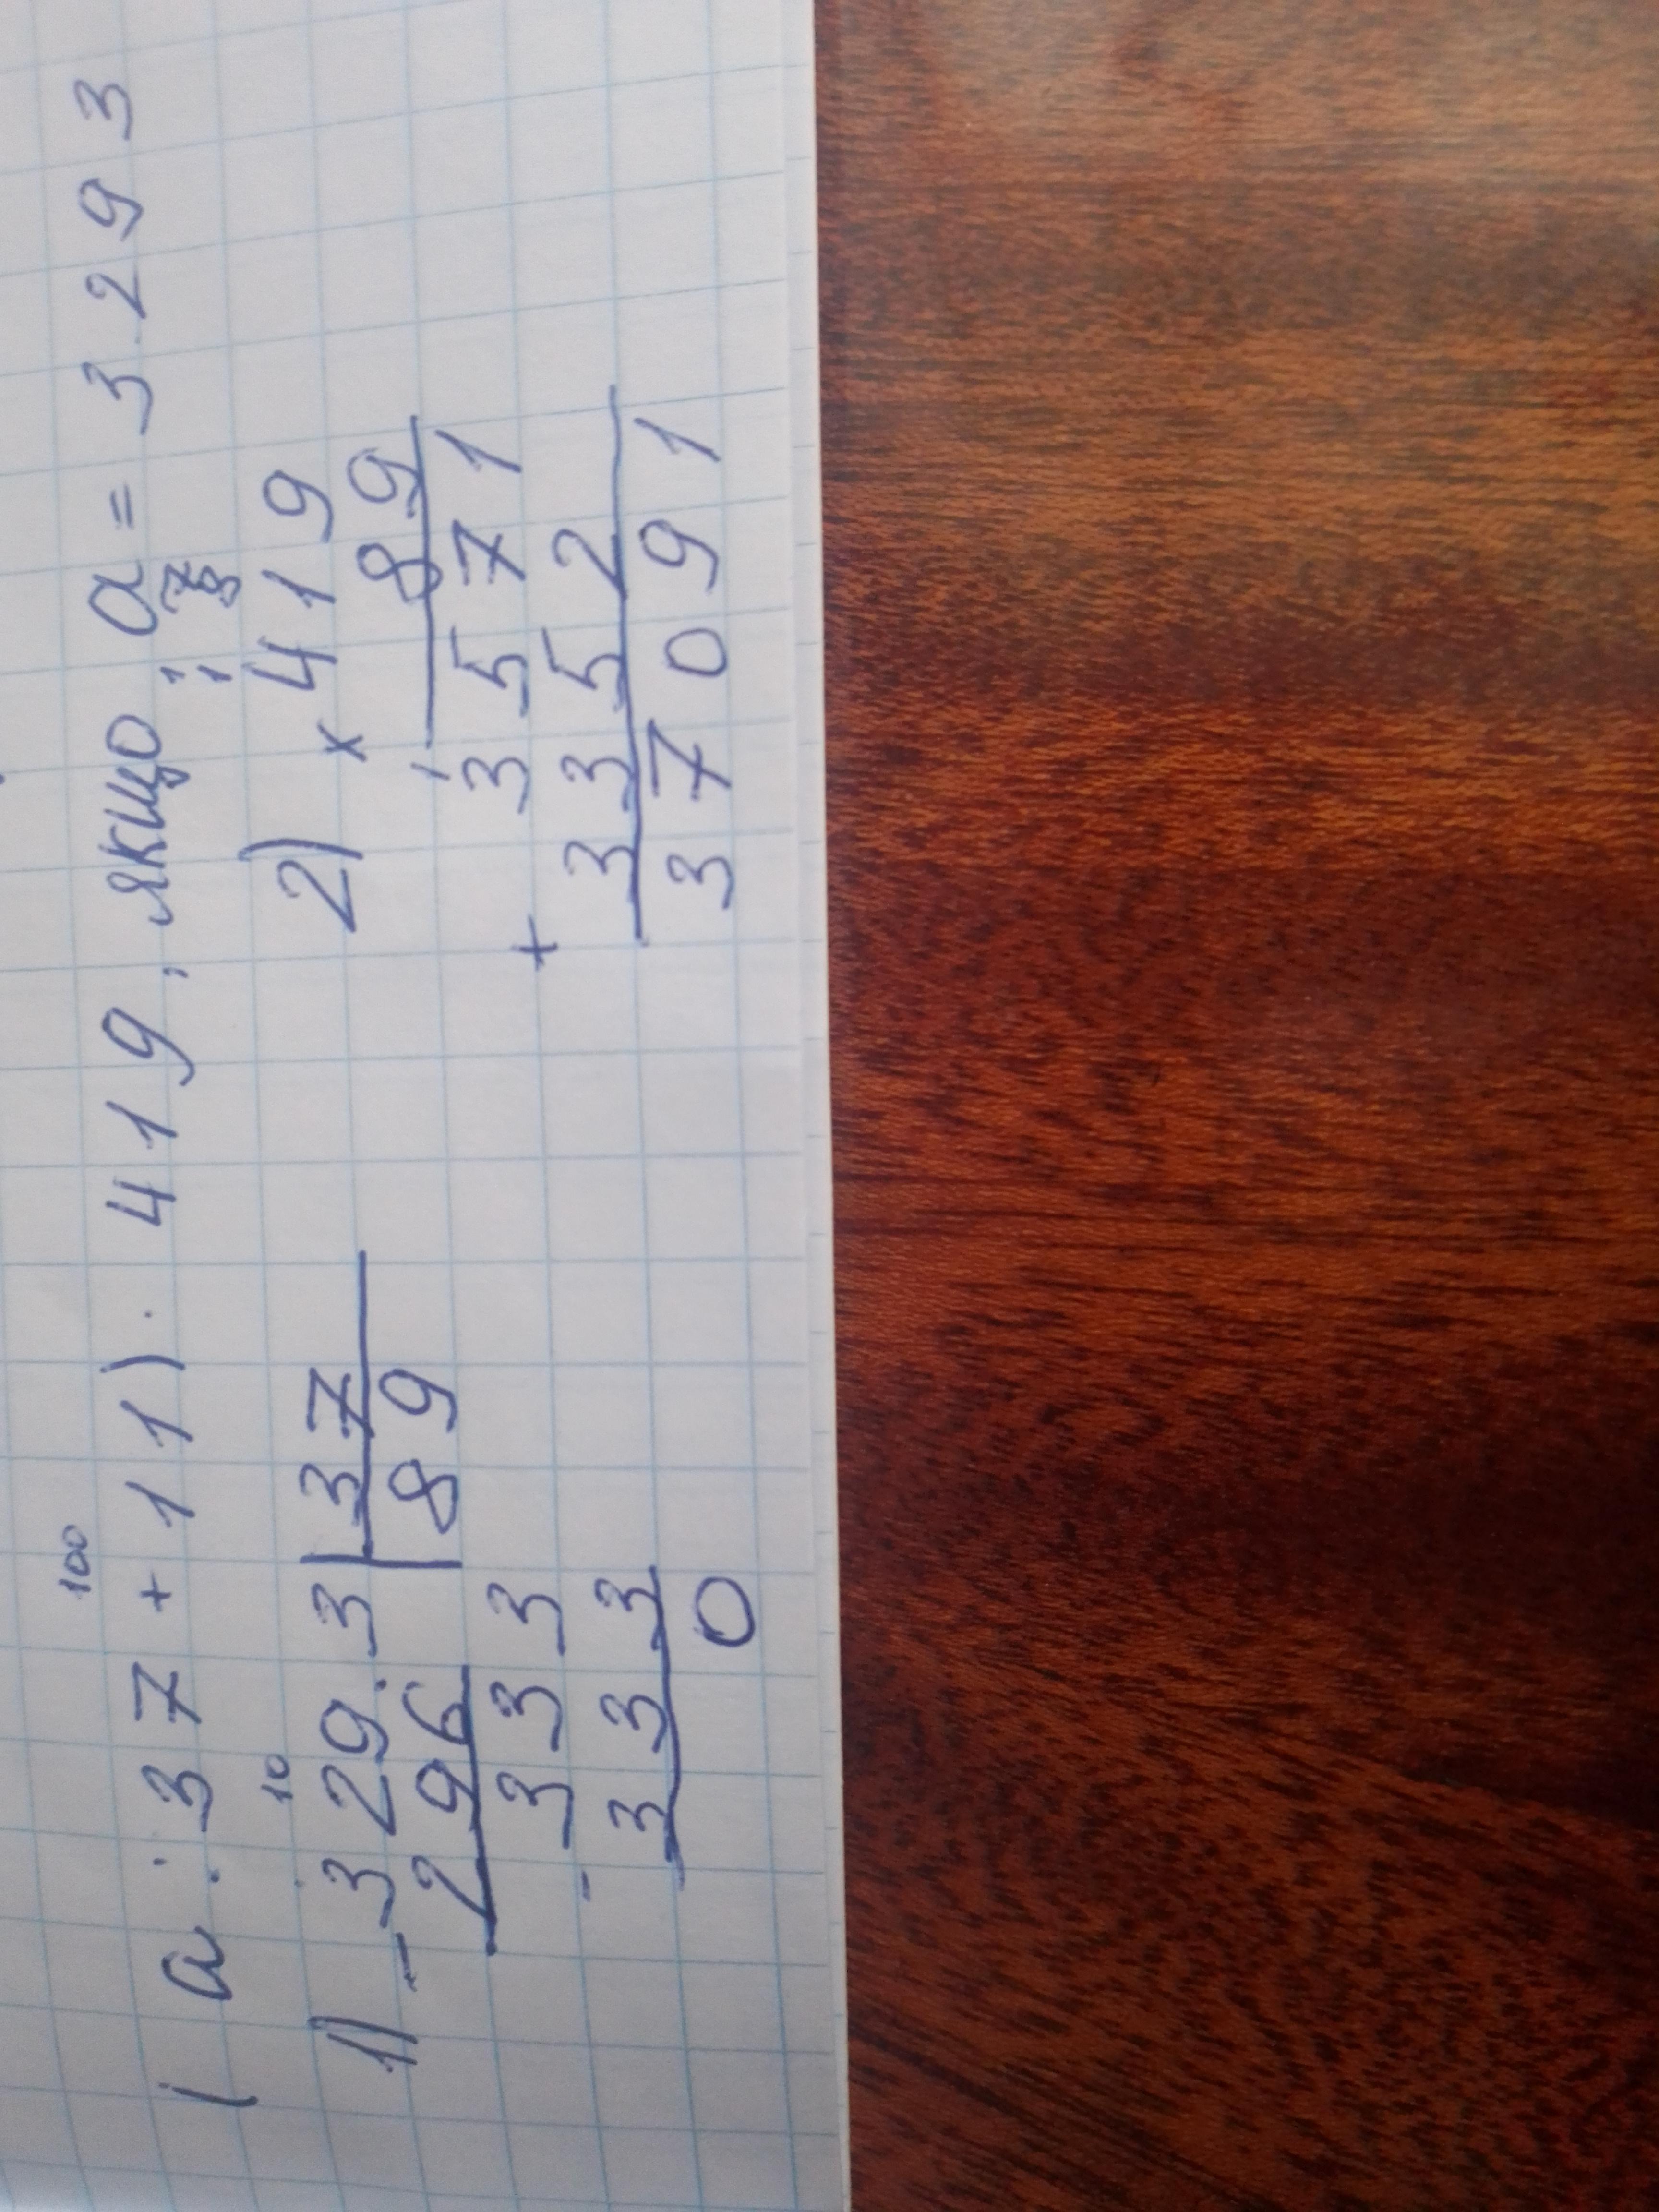 100
(a : 37 + 11) · 419, якщо a = 3293
1) 3293 | 37 2) × 419
- 296 | 89 89
333 3771
- 333 + 3352
0 37091